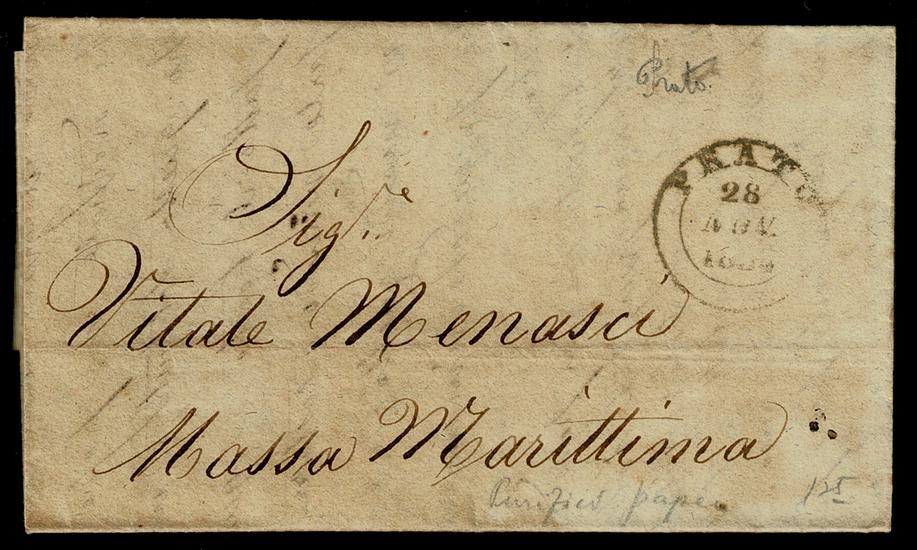 Prato.
PRATO
28
NOV.
Sig.re
Vitale Menasci
Massa Marittima
Purified paper
125